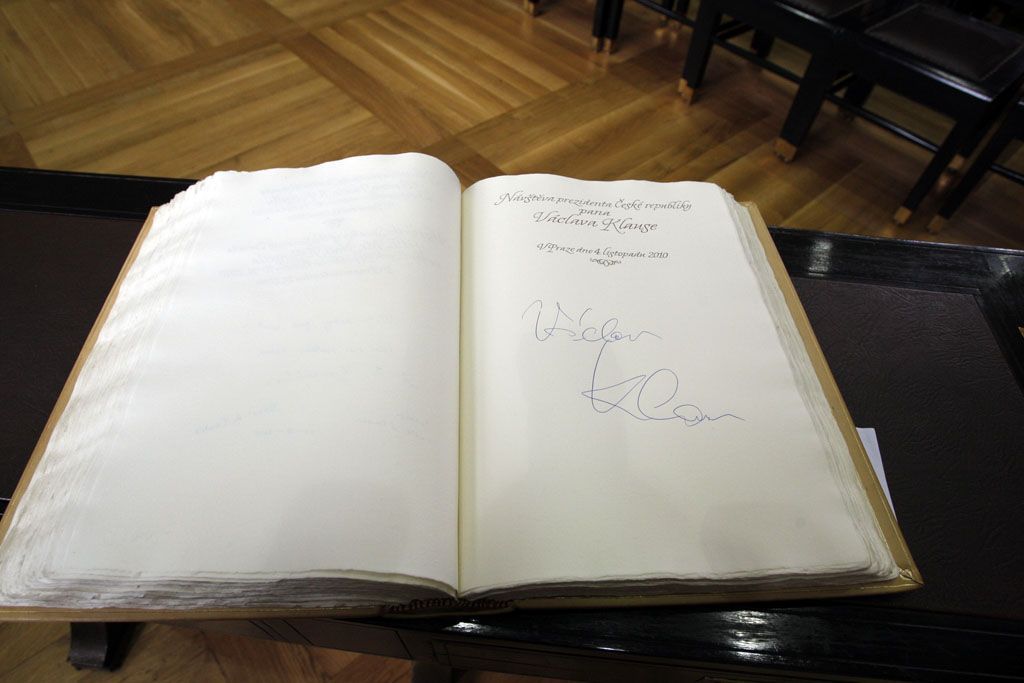 Návštěva prezidenta České republiky
pana
Václava Klause
V Praze dne 4. listopadu 2010
Václav
Klaus